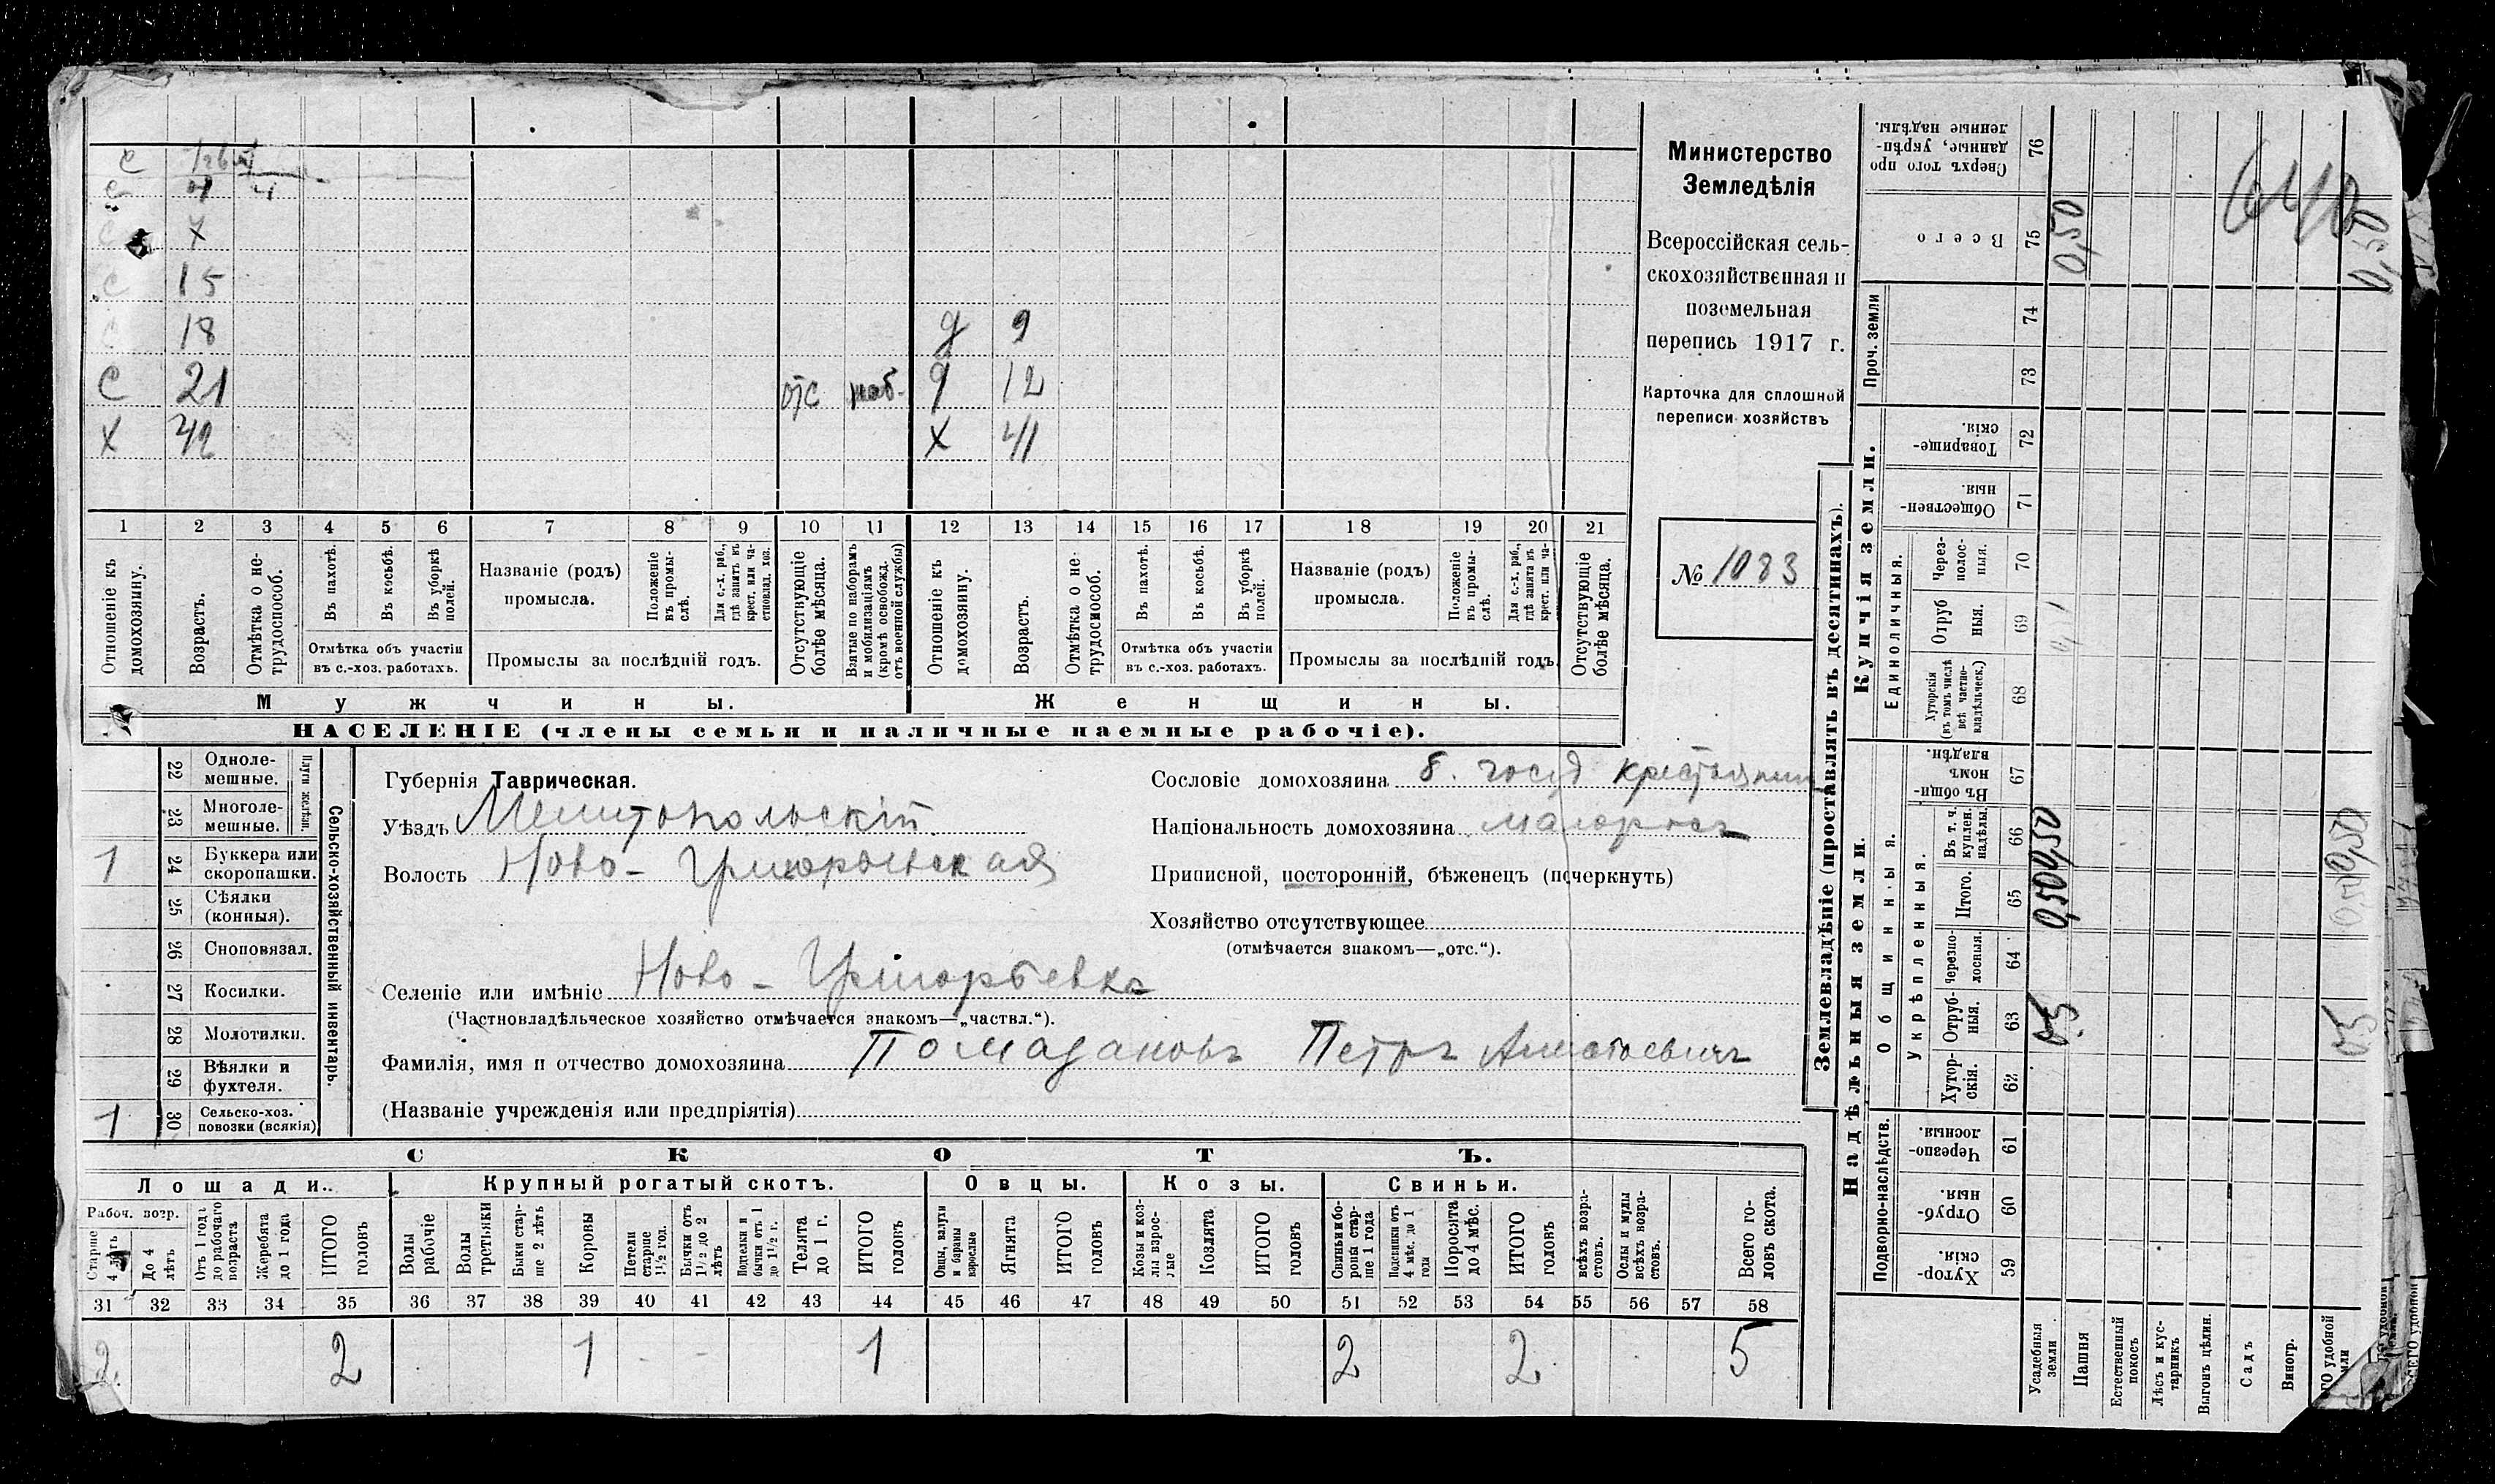 Министерство
Земледѣлія
Всероссійская сель-
скохозяйственная и
поземельная
перепись 1917 г.
Карточка для сплошной
переписи хозяйствъ
№ 1083
С
С 4 4
С X
С 15
С 18 д 9
С 21 отс моб. д 12
X 42 X 41
1 2 3 4 5 6 7 8 9 10 11 12 13 14 15 16 17 18 19 20 21
Отношеніе къ домохозяину.
Возрастъ.
Отмѣтка о не-трудоспособ.
Въ пахотѣ.
Въ косьбѣ.
Въ уборкѣ полей.
Отмѣтка объ участіи
въ с.-хоз. работахъ.
Названіе (родъ)
промысла.
Положеніе въ промы-слѣ.
Для с.-х. раб., гдѣ занятъ въ крест. или ча-стновлад. хоз.
Промыслы за послѣдній годъ.
Отсутствующіе болѣе мѣсяца.
Взятые по наборамъ и мобилизаціямъ (кромѣ освобожд. отъ военной службы)
Отношеніе къ домохозяину.
Возрастъ.
Отмѣтка о не-трудоспособ.
Въ пахотѣ.
Въ косьбѣ.
Въ уборкѣ полей.
Отмѣтка объ участіи
въ с.-хоз. работахъ.
Названіе (родъ)
промысла.
Положеніе въ промы-слѣ.
Для с.-х. раб., гдѣ занятъ въ крест. или ча-
Промыслы за послѣдній годъ.
Отсутствующіе болѣе мѣсяца.
Мужчины.
Женщины.
НАСЕЛЕНІЕ (члены семьи и наличные наемные рабочіе).
Сельско-хозяйственный инвентарь.
Плуги желѣзн.
22 Одноле-мешные.
23 Многоле-мешные.
1 24 Буккера или скоропашки.
25 Сѣялки (конныя).
26 Сноповязал.
27 Косилки.
28 Молотилки.
29 Вѣялки и фухтеля.
1 30 Сельско-хоз. повозки (всякія)
Губернія Таврическая.
Уѣздъ Мелитопольскій
Волость Ново-Григорьевская
Селеніе или имѣніе Ново-Григорьевка
(Частновладѣльческое хозяйство отмѣчается знакомъ—„частвл.“).
Фамилія, имя и отчество домохозяина Помадановъ Петръ
(Названіе учрежденія или предпріятія)
Сословіе домохозяина б. госуд крестьянин
Національность домохозяина малороссъ
Приписной, посторонній, бѣженецъ (почеркнуть)
Хозяйство отсутствующее
(отмѣчается знакомъ—„отс.“).
СКОТЪ.
Лошади. Крупный рогатый скотъ. Овцы. Козы. Свиньи.
Рабоч. возр.
Старше 4 лѣтъ
До 4 лѣтъ
Отъ 1 года до рабочаго возраста
Жеребята до 1 года
ИТОГО головъ
Волы рабочіе
Волы третьяки
Быки стар-ше 2 лѣтъ
Коровы
Нетели старше 1½ год.
Бычки отъ 1½ до 2 лѣтъ
Подтелки и бычки отъ 1 до 1½ г.
Телята до 1 г.
ИТОГО головъ
Овцы, валухи и бараны взрослые
Ягнята
ИТОГО головъ
Козы и коз-лы взрос-лые
Козлята
ИТОГО головъ
Свиньи и бо-ровы стар-ше 1 года
Подсвинки отъ 4 мѣс. до 1 года
Поросята до 4 мѣс.
ИТОГО головъ
всѣхъ возра-стовъ.
Ослы и мулы всѣхъ возра-стовъ.
Всего го-ловъ скота.
31 32 33 34 35 36 37 38 39 40 41 42 43 44 45 46 47 48 49 50 51 52 53 54 55 56 57 58
2 2 1 - - 1 2 2 5
Землевладѣніе (проставлять въ десятинахъ).
Надѣльныя земли.
Купчія земли.
Проч. земли
Подворно-наслѣдств.
Общинныя.
Укрѣпленныя.
Единоличныя.
59 Хутор-скія.
60 Отруб-ныя.
61 Черезпо-лосныя.
62 Хутор-скія.
63 Отруб-ныя.
64 черезпо-лосныя.
65 Итого.
66 Въ т. ч. куплен. надѣлы.
67 Въ общи-номъ владѣн.
68 Хуторскія (въ томъ числѣ всѣ частно-владѣльческ.)
69 Отруб ныя.
70 Через-полос-ныя.
71 Обществен-ныя.
72 Товарище-скія.
73
74
75 Всего
76 Сверхъ того про данные, укрѣп-ленные надѣлы.
Усадебныя земли 0,5 0,50 0,50 0,50
Пашня
Естественный покосъ
Лѣсъ и кус-тарникъ
Выгонъ цѣлин.
Садъ
Виногр.
ГО удобной
0,5 0,50 0,50